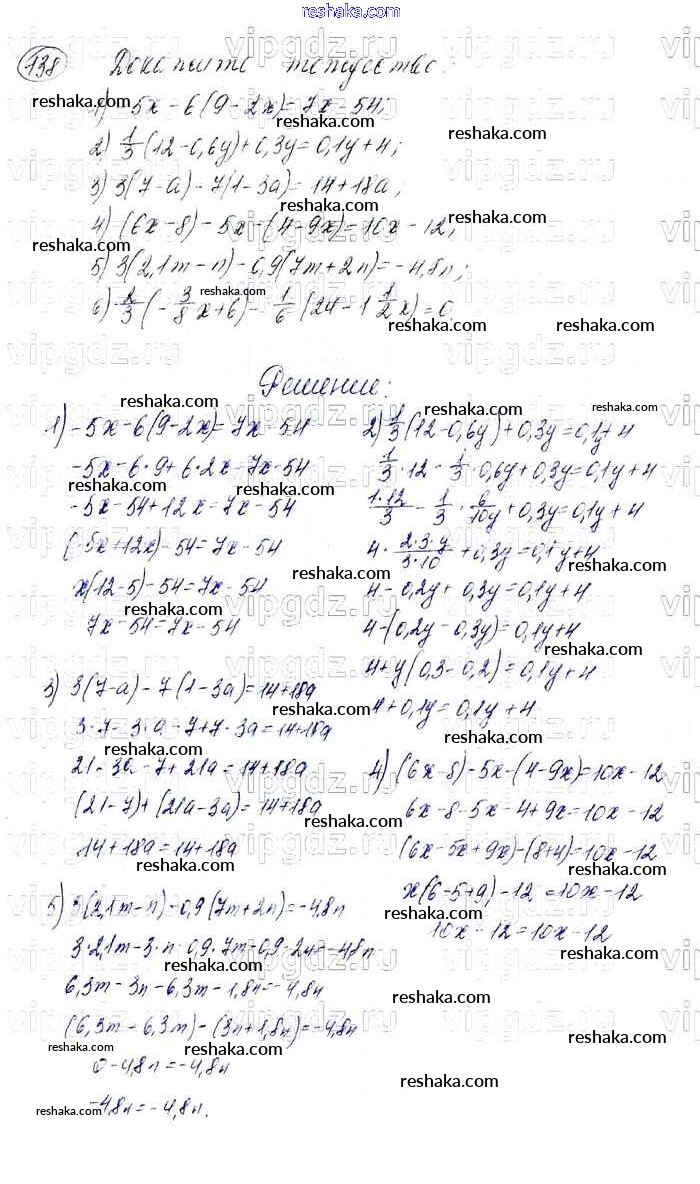 reshaka.com
138 Докажите тождество:
1) -5x-6(9-2x)=7x-54;
2) 1/3(12-0,6y)+0,3y=0,1y+4;
3) 3(7-a)-7(1-3a)=14+18a;
4) (6x-8)-5x-(4-9x)=10x-12;
5) 3(2,1m-n)-0,9(7m+2n)=-4,8n;
6) 2/3(-3/8x+6)-1/6(24-1 1/2x)=0
Решение:
1) -5x-6(9-2x)=7x-54
-5x-6·9+6·2x=7x-54
-5x-54+12x=7x-54
(-5x+12x)-54=7x-54
x(12-5)-54=7x-54
7x-54=7x-54
2) 1/3(12-0,6y)+0,3y=0,1y+4
1/3·12-1/3·0,6y+0,3y=0,1y+4
1·12/3-1/3·6/10y+0,3y=0,1y+4
4·2·3·y/3·10+0,3y=0,1y+4
4-0,2y+0,3y=0,1y+4
4-(0,2y-0,3y)=0,1y+4
4+y(0,3-0,2)=0,1y+4
4+0,1y=0,1y+4
3) 3(7-a)-7(1-3a)=14+18a
3·7-3·a-7+7·3a=14+18a
21-3a-7+21a=14+18a
(21-7)+(21a-3a)=14+18a
14+18a=14+18a
4) (6x-8)-5x-(4-9x)=10x-12
6x-8-5x-4+9x=10x-12
(6x-5x+9x)-(8+4)=10x-12
x(6-5+9)-12=10x-12
10x-12=10x-12
5) 3(2,1m-n)-0,9(7m+2n)=-4,8n
3·2,1m-3·n-0,9·7m-0,9·2n=-4,8n
6,3m-3n-6,3m-1,8n=-4,8n
(6,3m-6,3m)-(3n+1,8n)=-4,8n
0-4,8n=-4,8n
-4,8n=-4,8n.